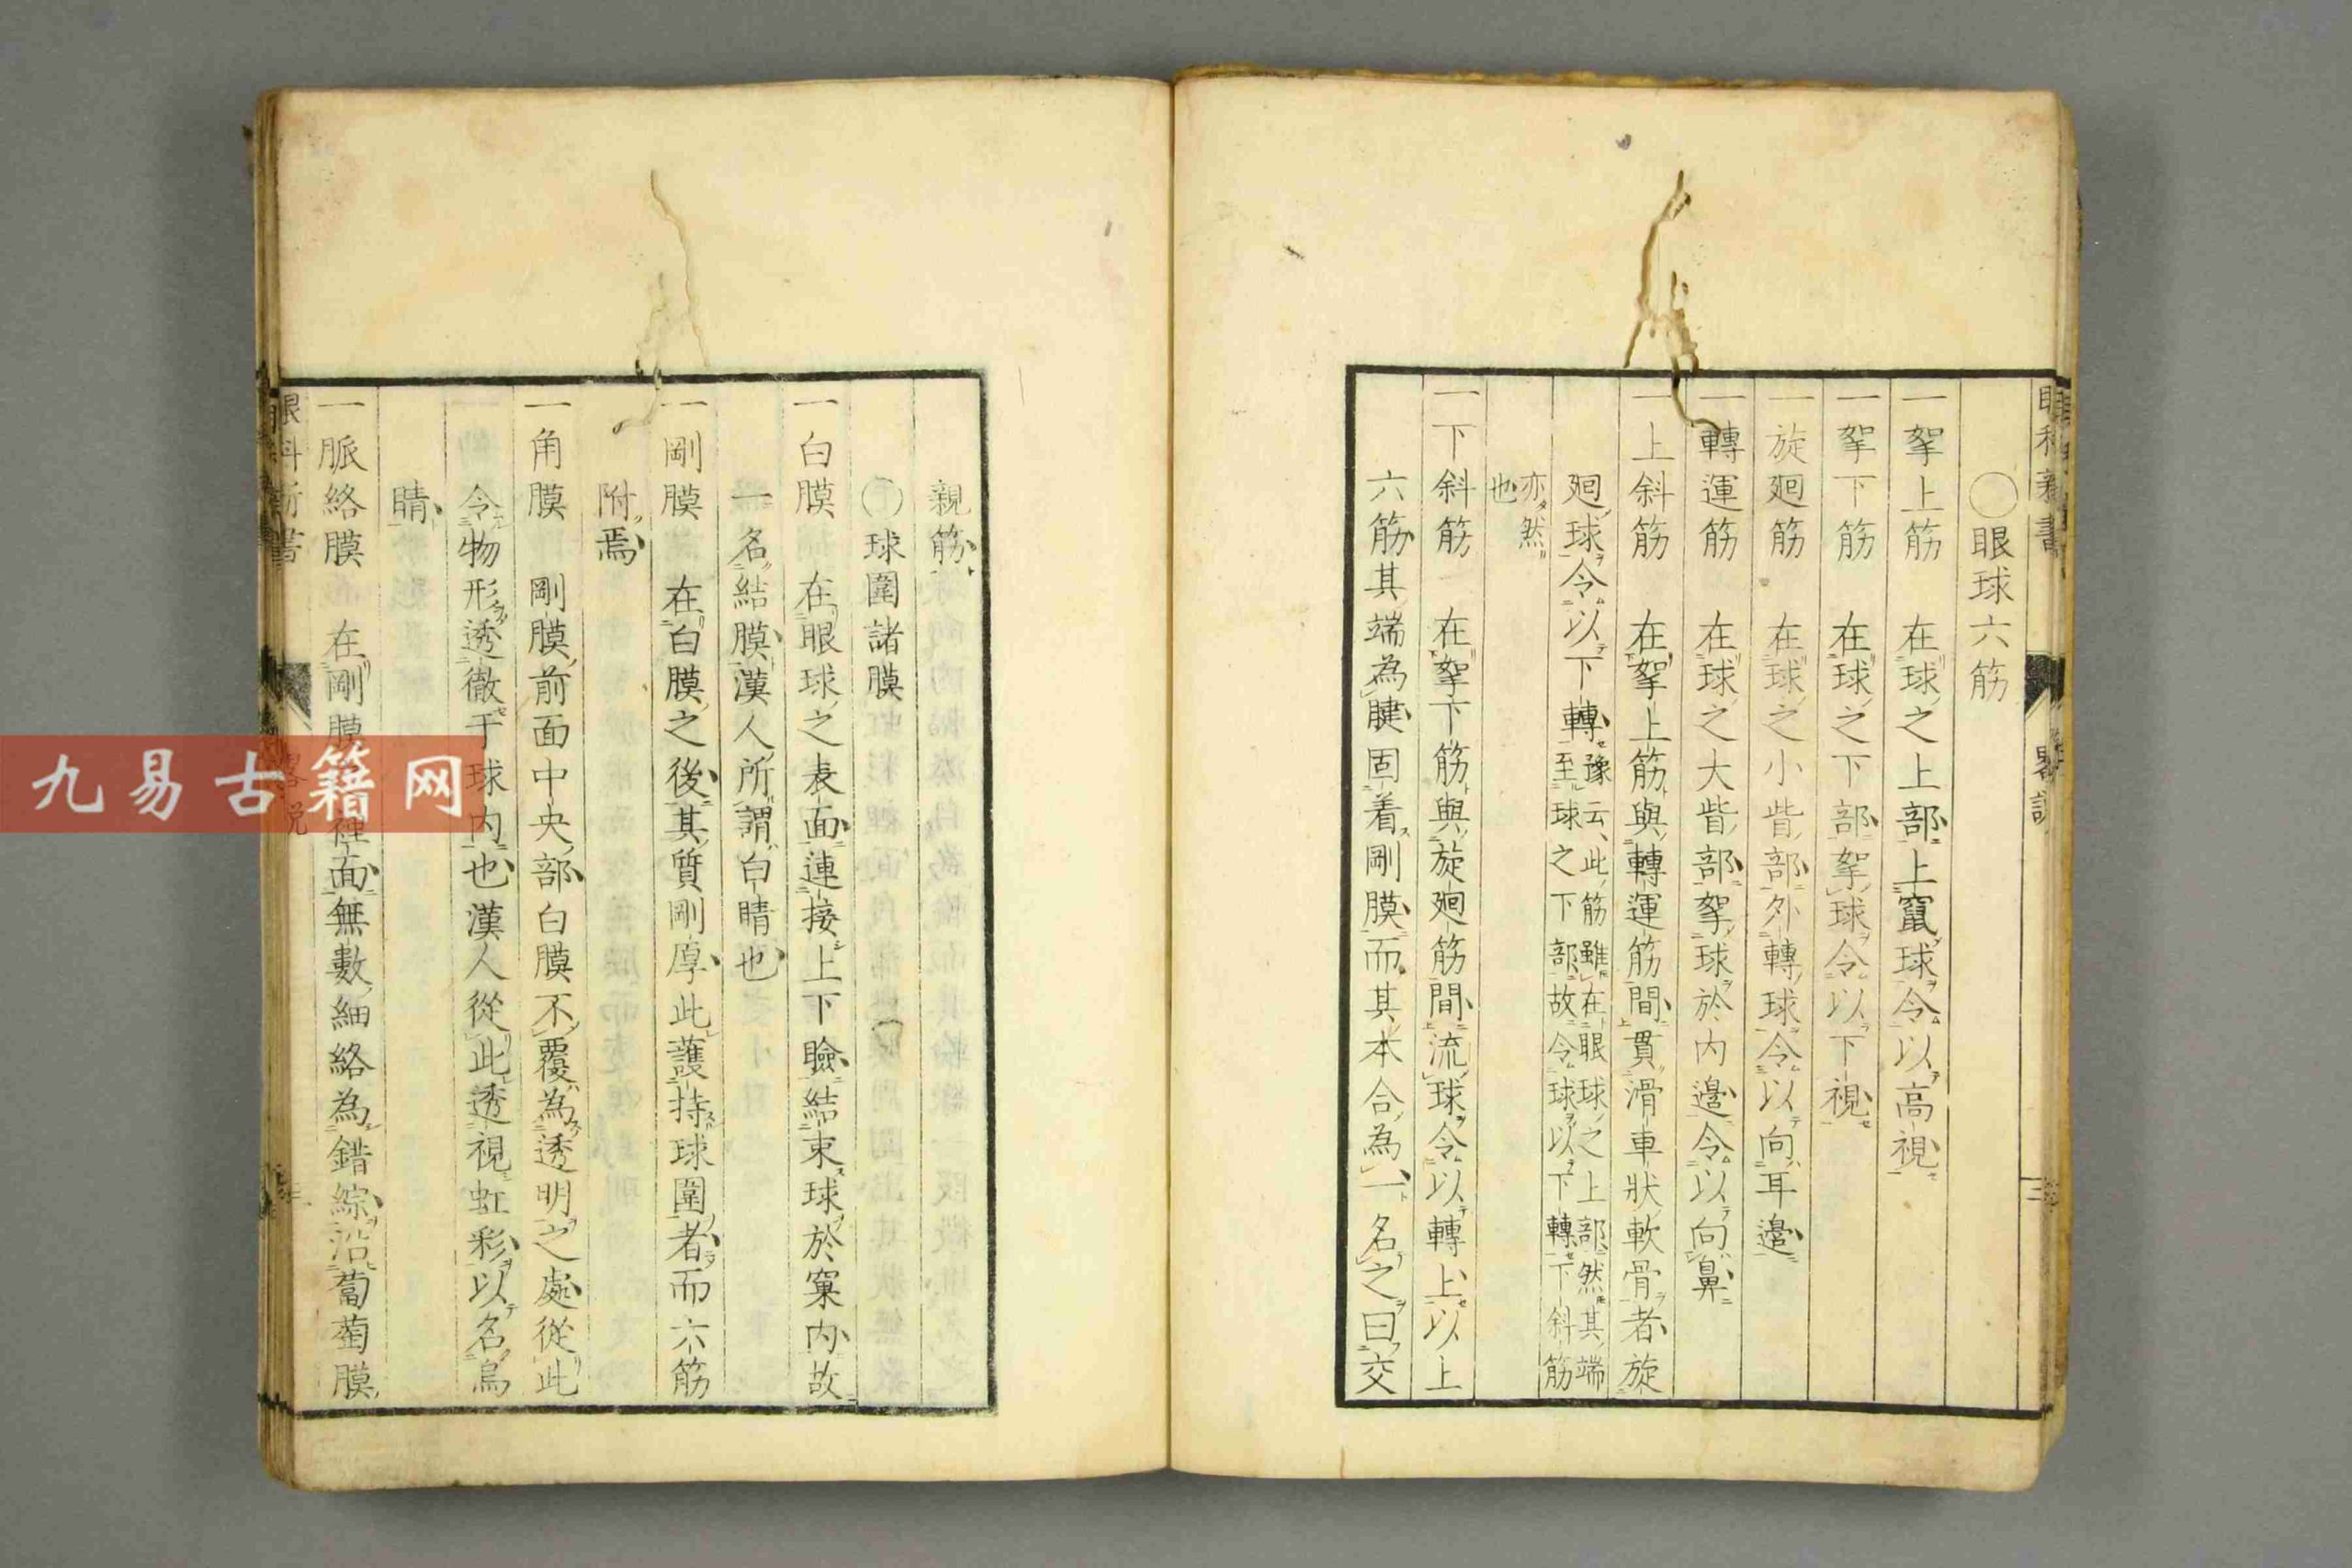 〇眼球六筋
一挐上筋　在球之上部上竄球令以高視
一挐下筋　在球之下部挐球令以下視
一旋廻筋　在球之小眥部外轉球令以向耳邊
一轉運筋　在球之大眥部挐球於內邊令以向鼻
一上斜筋　在挐上筋與轉運筋間貫滑車狀軟骨者旋
廻球令以下轉
豫云、此筋雖在眼球之上部然其端
至球之下部故令球以下轉下斜筋
亦然
也
一下斜筋　在挐下筋與旋廻筋間流球令以轉上以上
六筋其端為腱固着剛膜而其本合為一名之曰交
親筋
〇球圍諸膜
一白膜　在眼球之表面連接上下瞼結束球於窠內故
一名結膜漢人所謂白睛也
一剛膜　在白膜之後其質剛厚此護持球圍者而六筋
附焉
一角膜　剛膜前面中央部白膜不覆為透明之處從此
令物形透徹于球內也漢人從此透視虹彩以名烏
睛
一脈絡膜　在剛膜裡面無數細絡為錯綜沿葡萄膜
九易古籍网